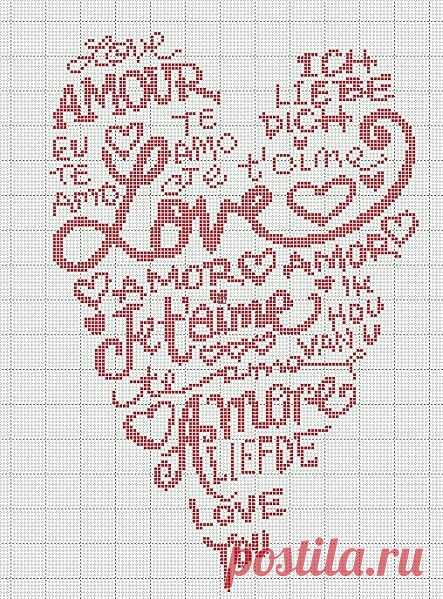 Love
AMOUR
ICH
LIEBE
DICH
EU
TE
AMO
TE
AMO
t'aime
Love
AMOR
AMOR
Je t'aime
IK
HOU
VAN U
te amo
Amore
LIEFDE
LOVE
YOU
postila.ru